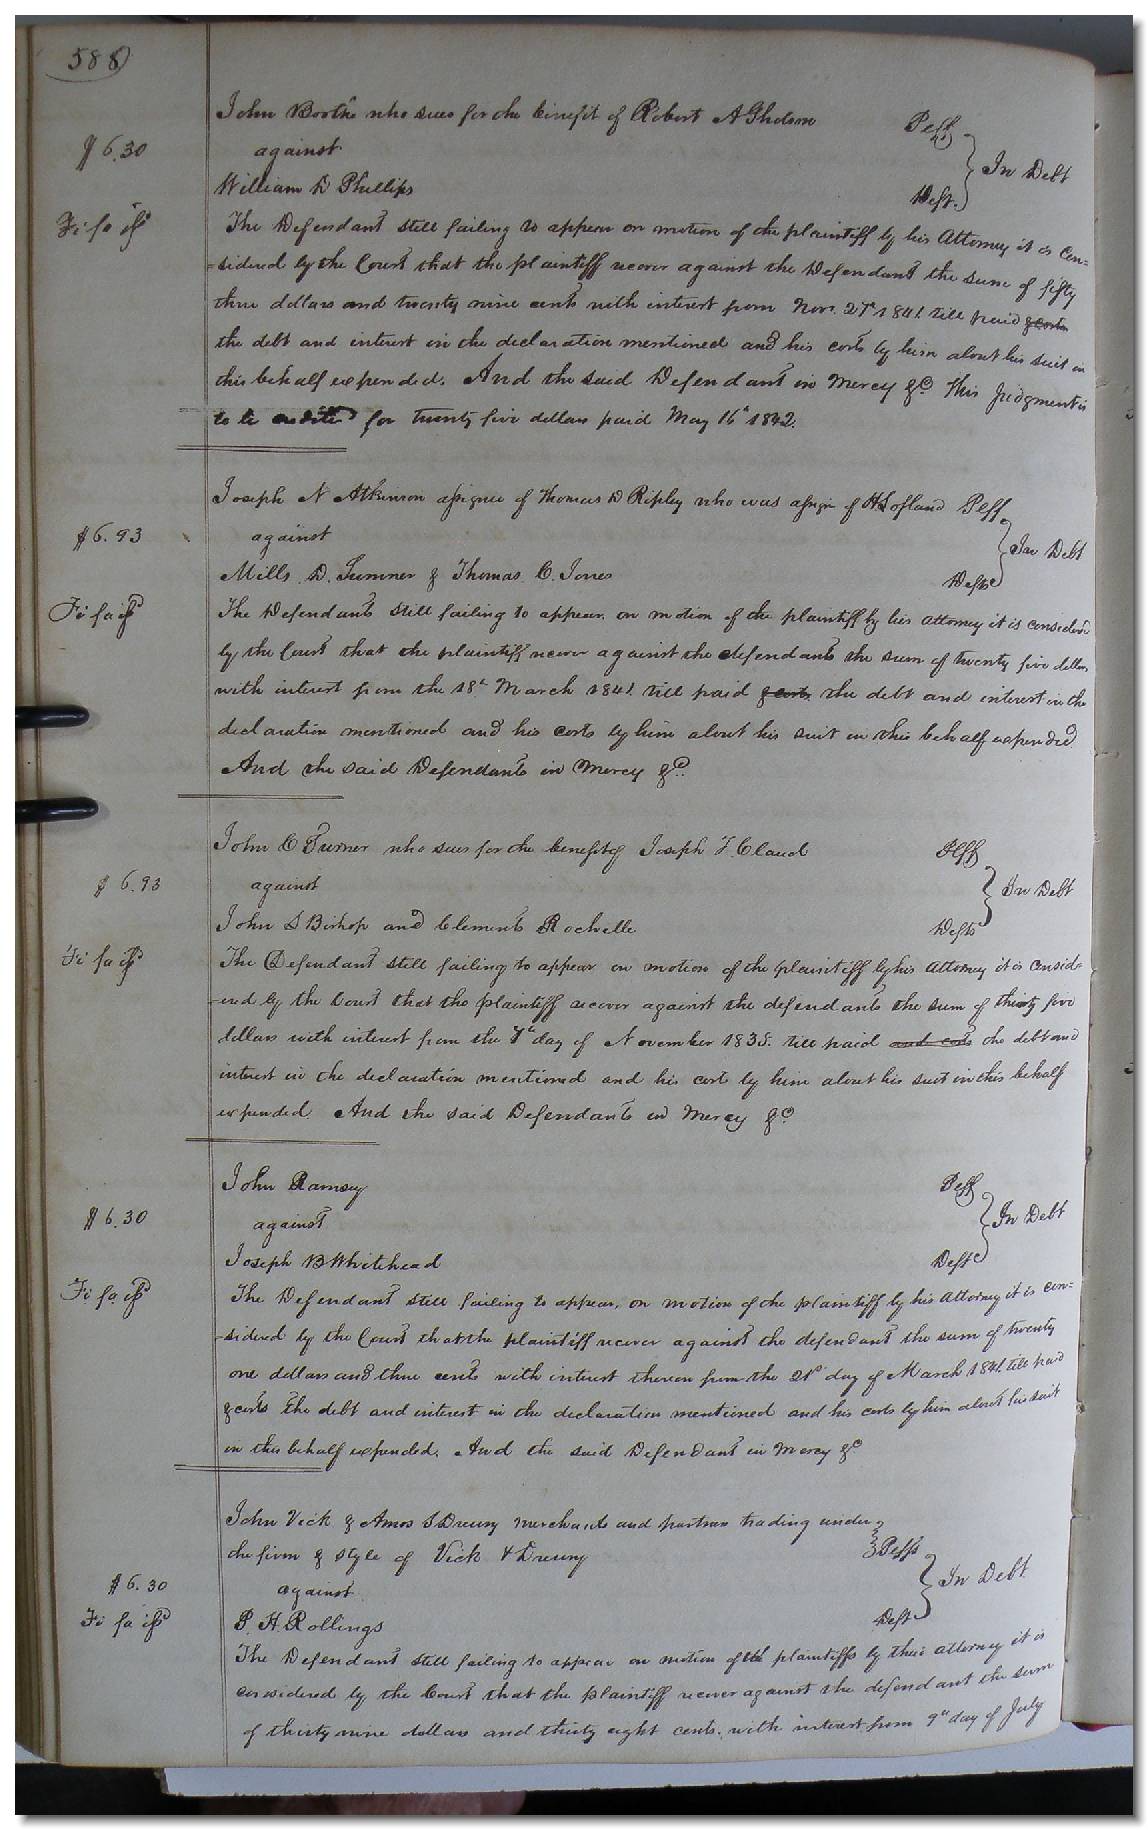 588
John Boothe who sues for the benefit of Robert A Gholson Peff
$6.30 against In Debt
William D Phillips Deft.
Fi fa iss
The Defendant still failing to appear on motion of the plaintiff by his Attorney it is con=
=sidered by the Court that the plaintiff recover against the Defendant the sum of fifty
three dollars and twenty nine cents with interest from Nov. 27th 1841 till paid & costs
the debt and interest in the declaration mentioned and his costs by him about his suit in
this behalf expended. And the said Defendant in Mercy &c This Judgment is
to be credited for twenty five dollars paid May 16th 1842.
Joseph N Atkinson assignee of Thomas D Ripley who was assign of H Lofland Peff
$6.93 against In Debt
Mills D. Sumner & Thomas C. Jones Defts
Fi fa iss
The Defendants still failing to appear, on motion of the plaintiff by his attorney it is considered
by the Court that the plaintiff recover against the defendants the sum of twenty five dollars
with interest from the 18th March 1841 till paid & costs the debt and interest in the
declaration mentioned and his costs by him about his suit in this behalf expended
And the said Defendants in Mercy &c.
John C Turner who sues for the benefit of Joseph T. Claud Plff
$6.93 against In Debt
John S Bishop and Clements Rochelle Defts
Fi fa iss
The Defendant still failing to appear on motion of the plaintiff by his Attorney it is consid=
-ered by the Court that the plaintiff recover against the defendants the sum of thirty five
dollars with interest from the 7th day of November 1838. till paid and costs the debt and
interest in the declaration mentioned and his costs by him about his suit in this behalf
expended And the said Defendants in Mercy &c
John Ramsey Peff
$6.30 against In Debt
Joseph B Whitehead Deft
Fi fa iss
The Defendant still failing to appear, on motion of the plaintiff by his Attorney it is con=
-sidered by the Court that the plaintiff recover against the defendant the sum of twenty
one dollars and three cents with interest thereon from the 21st day of March 1841 till paid
& costs the debt and interest in the declaration mentioned and his costs by him about his suit
in this behalf expended. And the said Defendant in Mercy &c
John Vick & Amos S Drewry merchants and partners trading under
the firm & style of Vick & Drewry Peffs
$6.30 against In Debt
Fi fa iss P. H. Rollings Deft
The Defendant still failing to appear on motion of the plaintiffs by their attorney it is
considered by the Court that the plaintiff recover against the defendant the sum
of thirty nine dollars and thirty eight cents, with interest from 9th day of July